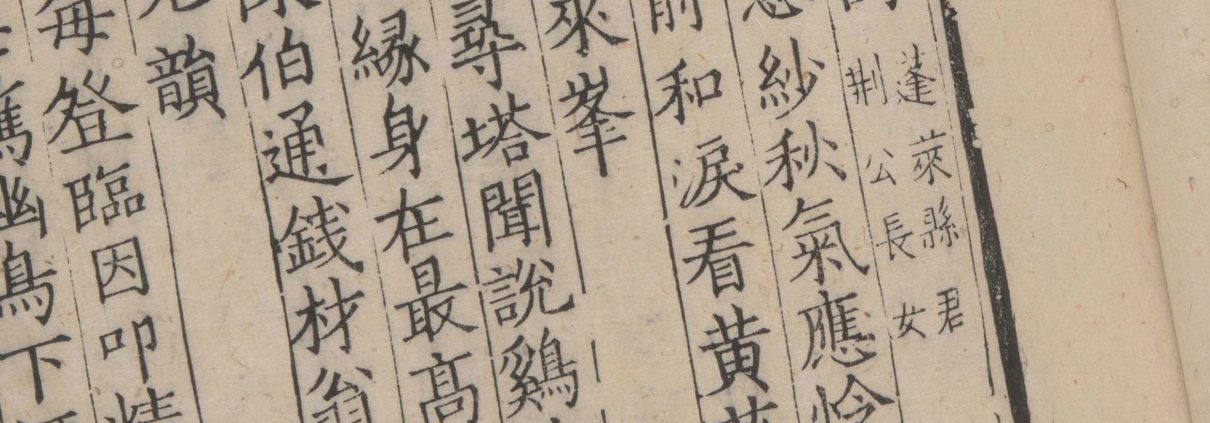 蓬萊縣君
荆公長女
紗秋氣應
前和淚看黄
來峯
尋塔聞說鷄
緣身在最高
伯通錢材翁
韻
每登臨因叩
幽鳥下